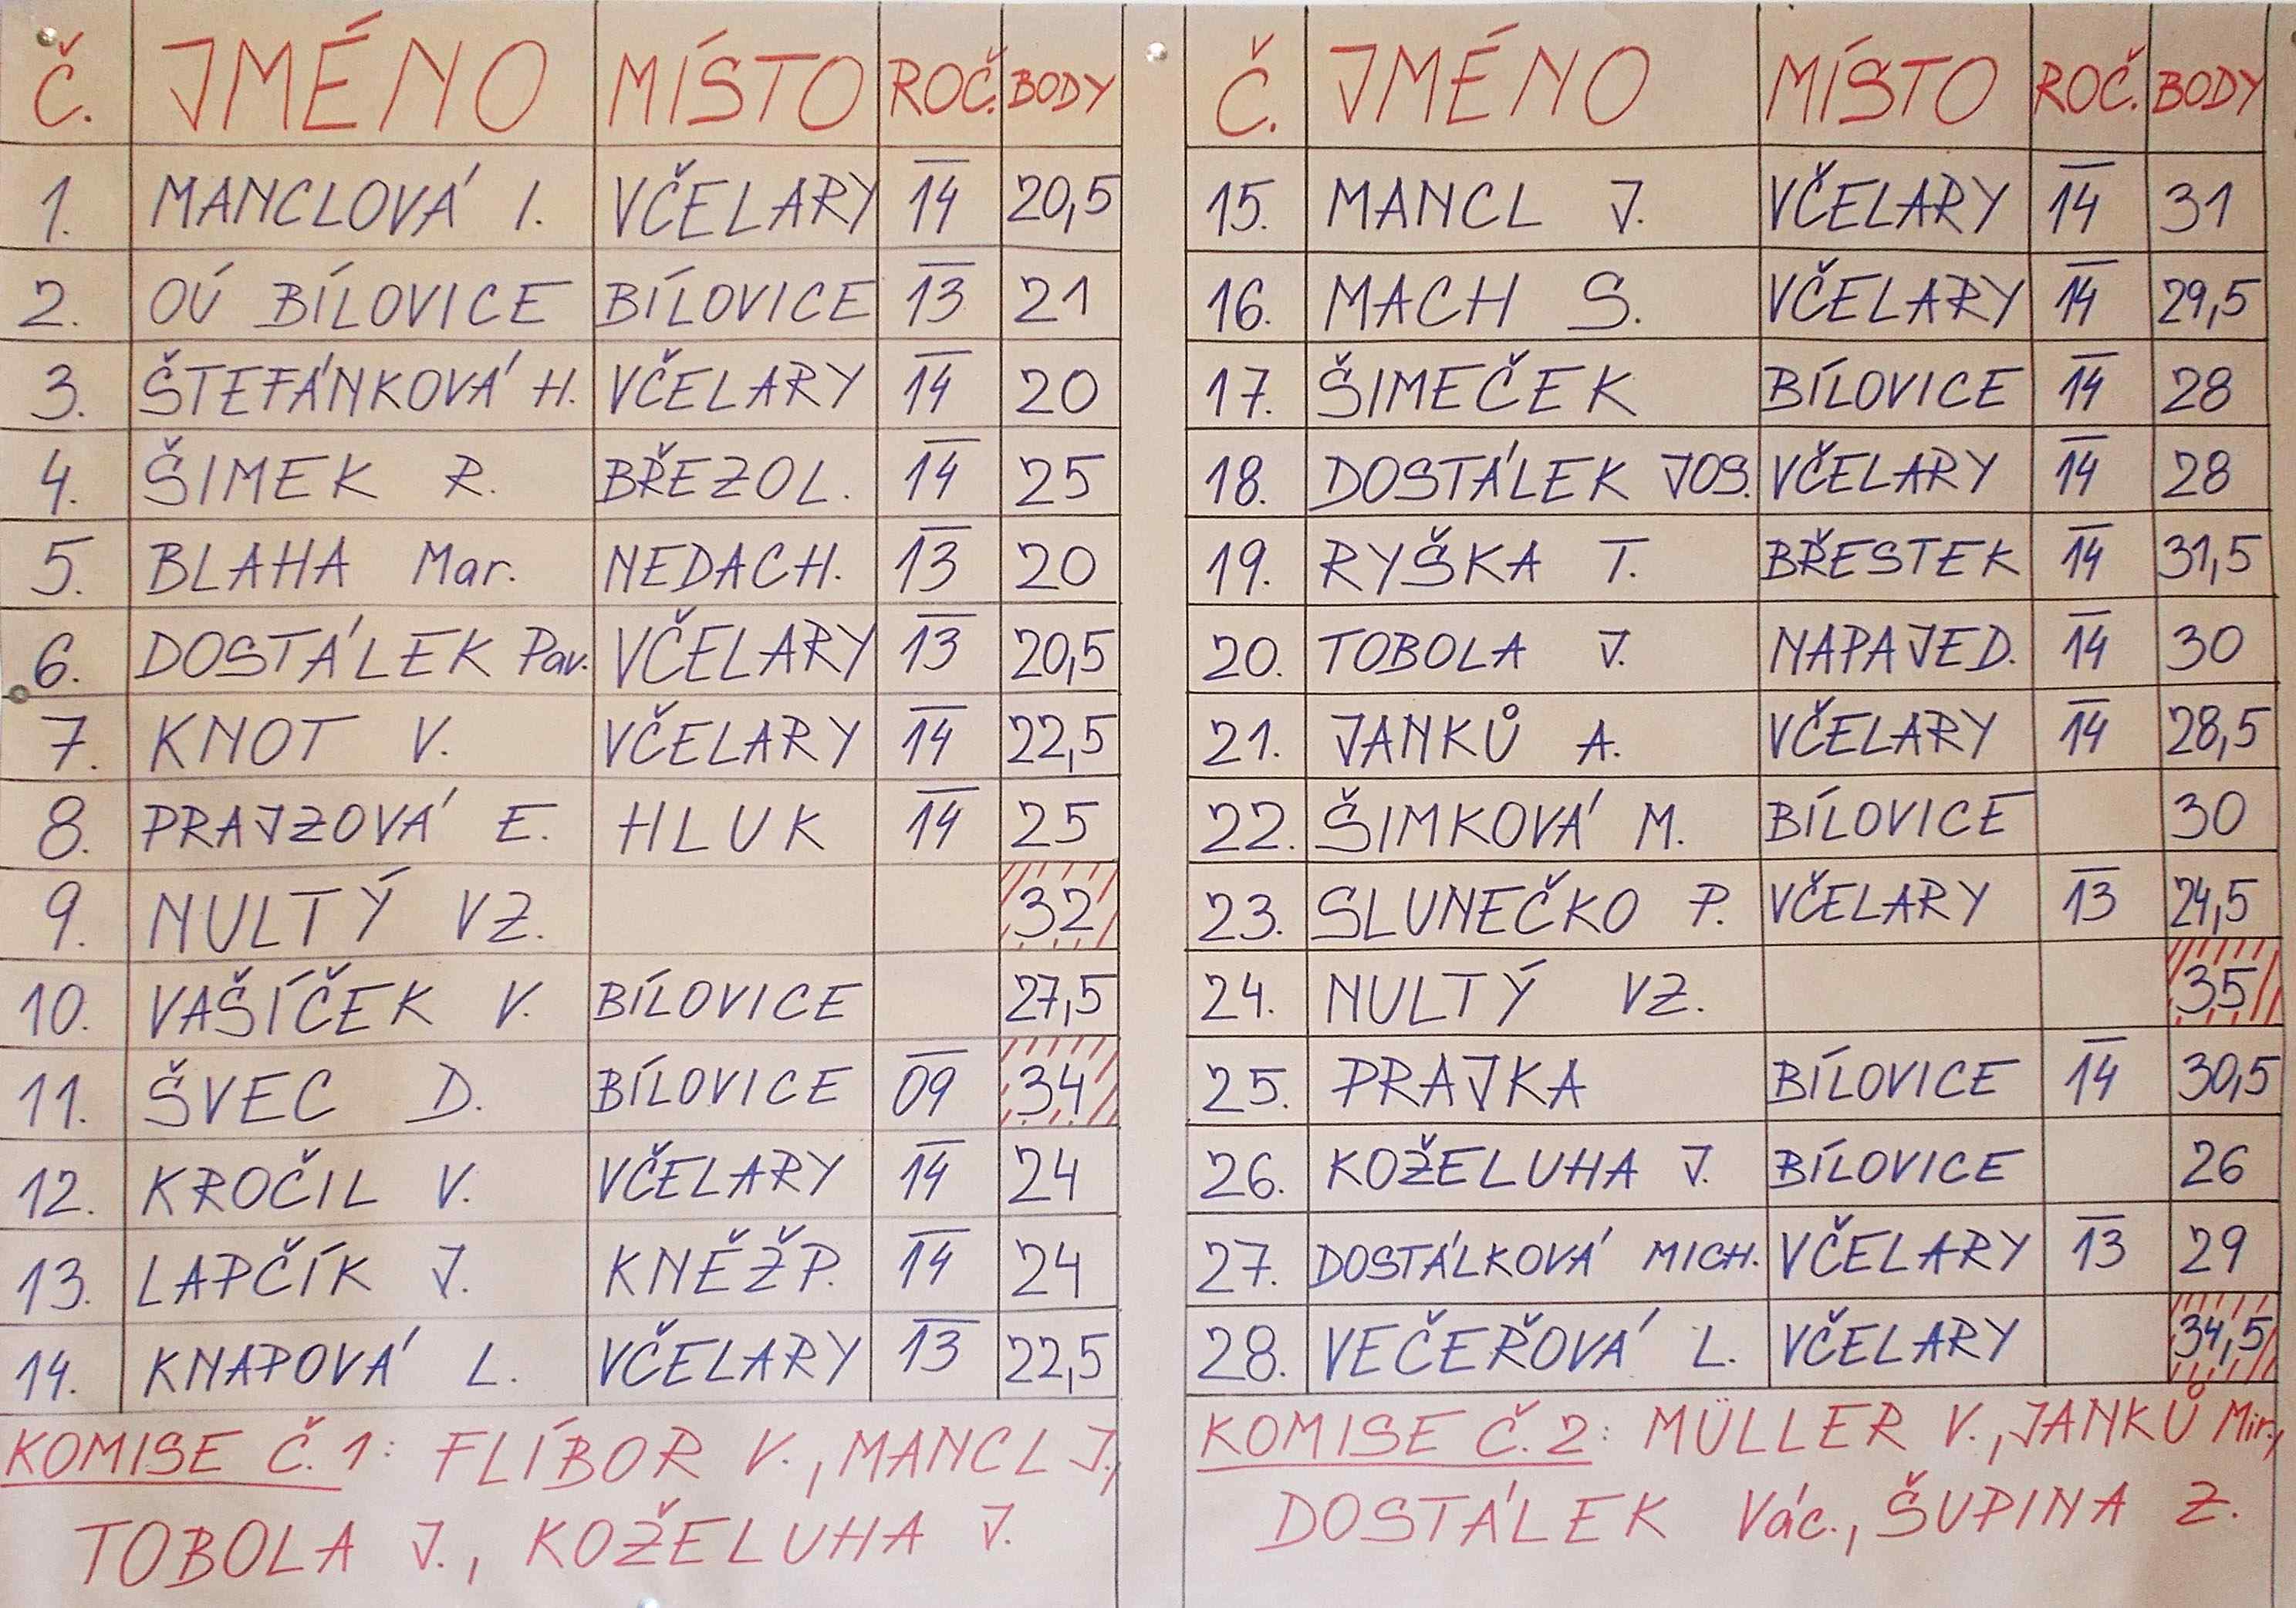 Č. JMÉNO MÍSTO ROČ. BODY
1. MANCLOVÁ I. VČELARY 14 20,5
2. OÚ BÍLOVICE BÍLOVICE 13 21
3. ŠTEFÁNKOVÁ H. VČELARY 14 20
4. ŠIMEK R. BŘEZOL. 14 25
5. BLAHA Mar. NEDACH. 13 20
6. DOSTÁLEK Pav. VČELARY 13 20,5
7. KNOT V. VČELARY 14 22,5
8. PRAJZOVÁ E. HLUK 14 25
9. NULTÝ VZ. 32
10. VAŠÍČEK V. BÍLOVICE 27,5
11. ŠVEC D. BÍLOVICE 09 34
12. KROČIL V. VČELARY 14 24
13. LAPČÍK J. KNĚŽP. 14 24
14. KNAPOVÁ L. VČELARY 13 22,5
KOMISE Č. 1: FLÍBOR V., MANCL J.,
TOBOLA J., KOŽELUHA J.
Č. JMÉNO MÍSTO ROČ. BODY
15. MANCL J. VČELARY 14 31
16. MACH S. VČELARY 14 29,5
17. ŠIMEČEK BÍLOVICE 14 28
18. DOSTÁLEK JOS. VČELARY 14 28
19. RYŠKA T. BŘESTEK 14 31,5
20. TOBOLA J. NAPAJED. 14 30
21. JANKŮ A. VČELARY 14 28,5
22. ŠIMKOVÁ M. BÍLOVICE 30
23. SLUNEČKO P. VČELARY 13 24,5
24. NULTÝ VZ. 35
25. PRAJKA BÍLOVICE 14 30,5
26. KOŽELUHA J. BÍLOVICE 26
27. DOSTÁLKOVÁ MICH. VČELARY 13 29
28. VEČEŘOVÁ L. VČELARY 34,5
KOMISE Č. 2: MÜLLER V., JANKŮ Mir.,
DOSTÁLEK Vác., ŠUPINA Z.